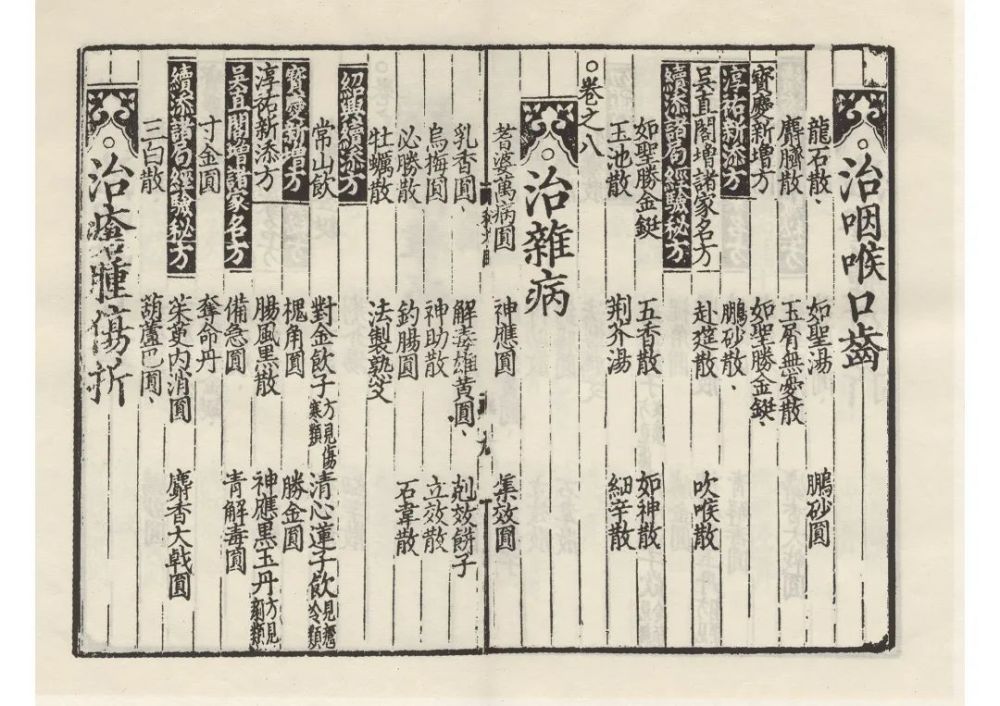 ○治咽喉口齒
龍石散 如聖湯 鵬砂圓
麝臍散 玉屑無憂散
寶慶新增方 如聖勝金鋌
淳祐新添方 鵬砂散
吳直閣增諸家名方 赴筵散 吹喉散
續添諸局經驗秘方
如聖勝金鋌 五香散 如神散
玉池散 荆芥湯 細辛散
○卷之八
○治雜病
耆婆萬病圓 神應圓 集效圓
乳香圓 解毒雄黃圓 剋效餅子
烏梅圓 神助散 立效散
必勝散 釣腸圓 石韋散
牡蠣散 法製熟艾
紹興續添方
常山飲 對金飲子方見傷寒類 清心蓮子飲見冷類
寶慶新增方 槐角圓 勝金圓
淳祐新添方 腸風黑散 神應黑玉丹方見類
吳直閣增諸家名方 備急圓 青解毒圓
寸金圓 奪命丹
續添諸局經驗秘方 茱萸內消圓 麝香大戟圓
三白散 葫蘆巴圓
○治瘡腫傷折